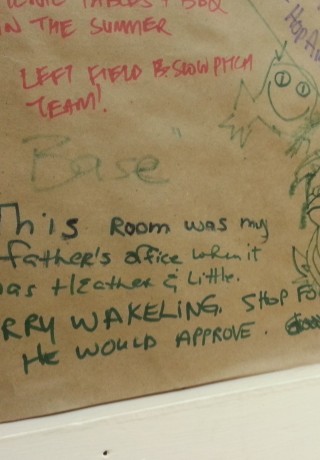 TABLES + BBQ
IN THE SUMMER
LEFT FIELD B: SLOW PITCH
TEAM!
Base"
This ROOM was my
father's office when it
was Heather & Little.
RRY WAKELING. SHOP FO
HE WOULD APPROVE.